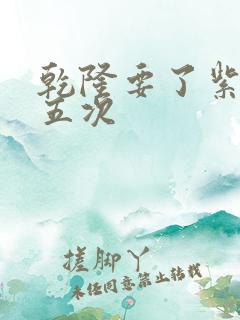 乾隆要了紫
五次
搓脚丫
未经同意禁止转载